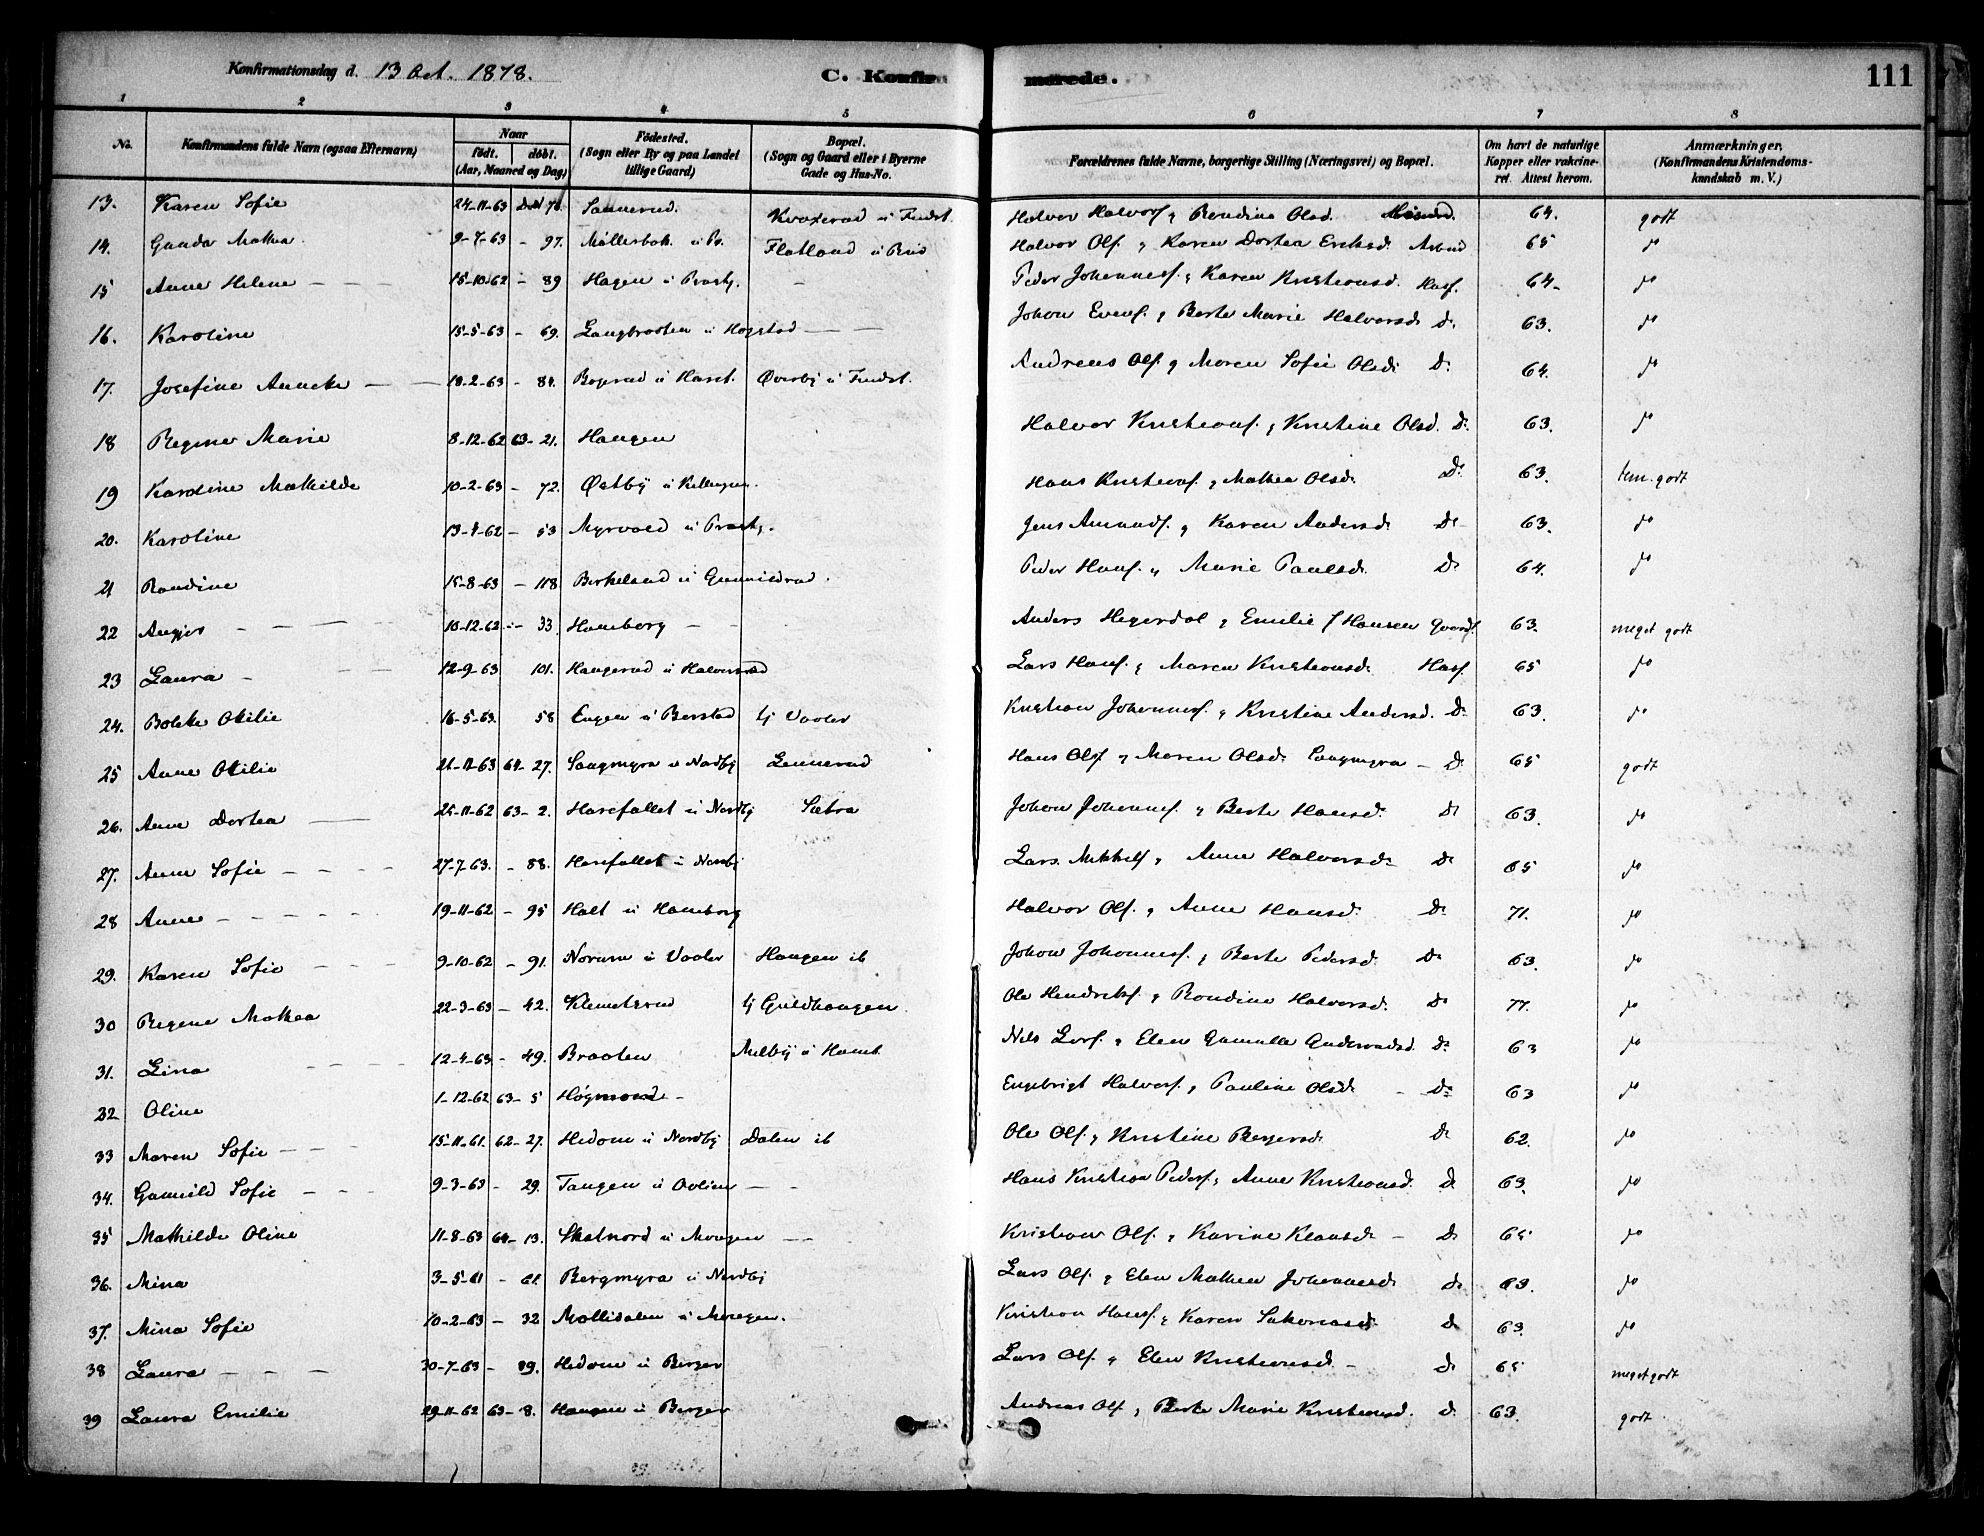 Konfirmationsdag d. 13 Oct. 1878.
C. Konfirmerede.
111
1 2 3 4 5 6 7 8
No.
Konfirmandens fulde Navn (ogsaa Efternavn)
Naar
født. døbt.
(Aar, Maaned og Dag)
Fødested.
(Sogn eller By og paa Landet
tillige Gaard)
Bopæl.
(Sogn og Gaard eller i Byerne
Gade og Hus-No.
Forældrenes fulde Navne, borgerlige Stilling (Næringsvei) og Bopæl.
Om havt de naturlige
Kopper eller vakcine-
ret. Attest herom.
Anmærkninger,
(Konfirmandens Kristendoms-
kundskab m. V.)
13. Karen Sofie 24-11-63 Sannerud. Halvor Halvors. & Rondine Olsd. 64. godt
14. Gunda Mathea 9-7-63 - 97. Flatland Halvor Ols. & Karen Dortea Eriksd. 65 do
15 Anne Helene 15-10-62 - 89 Hagen u Prestg. - Peder Johannes. & Karen Kristiansd. Husf. 64- do
16. Karoline 15-5-63 - 69. Langbraaten u Hogstad Johan Evens. & Berte Marie Halvorsd. Do 63. do
17. Josefine Anneke 19-2-63 - 84. Øverby Andreas Ols. & Maren Sofie Olsd. Do 64. do
18 Regine Marie 8-12-62 63- 21. Haugen Halvor Kristians. & Kristine Olsd. Do 63. do
19 Karoline Mathilde 10-2-63 - 72. Østby Hans Kristians. & Mathea Olsd. Do 63. tem. godt
20. Karoline 13-4-62 - 53 Myrvold u Prestg. Jens Amunds. & Karen Andersd. Do 63. do
21 Rondine 15-8-63 - 118 Birkeland u Gunnildrud. Peder Hans. & Marie Paulsd. Do 64. do
22 10-12-62 - 33. Homborg Anders Hegerdal & Emilie f Hansen Gaardf. 63. meget godt
23 Laura 12-9-63 101. Haugerud u Halvorsrud Lars Hans. & Maren Kristiansd. Husf. 65 do
24. Bolette Otilie 16-5-63. 58 Engen Vaaler Kristian Johannes. & Kristine Andersd. Do 63. do
25 Anne Otilie 63 64- 27. Langmyra u Nordby Lennerud Hans Ols. & Maren Olsd. Langmyra - Do 65 godt
26. Anne Dortea 25-11-62 63- 2. Harefallet u Nordby Sætra Johan Johannes. & Berte Hansd. Do 63. do
27. Anne Sofie 27-7-63. - 88. Harefallet u Nordby Lars Mikkels. & Anne Halvorsd. Do 65 do
28 Anne 19-11-62 - 95 Holt u Homborg Halvor Ols. & Anne Hansd. Do 71. do
29. Karen Sofie 9-10-62 - 91. Norum u Vaaler Haugen ib Johan Johannes. & Berte Pedersd. Do 63. do
30 Regine Mathea 22-3-63 - 42. Klemetsrud Guldhaugen. Ole Hendriks. & Rondine Halvorsd. Do 77. do
31. Lina 12-4-63 - 49. Braaten Melby u Homb. Nils Lars. & Elen Gunnilla Do 63 do
32 Oline 1-12-62 63- 5 Engebrigt Halvors. & Pauline Olsd. - Do 63 do
33 Maren Sofie 15-11-61. 62- 27. Hedom u Nordby Dalen ib Ole Ols. & Kristine Bergersd. Do 62. do
34. Gunnild Sofie 9-3-63 - 29. Tangen Hans Kristian Peders. & Anne Kristiansd. Do 63. do
35 Mathilde Oline 11-8-63 64- 13. Skotnord u Mangen Kristian Ols. & Karine Klausd. - Do 65 do
36. Mina 3-5-61 - 61. Bergmyra u Nordby Lars Ols. & Elen Mathea Johannesd. Do 63. do
37. Mina Sofie 10-2-63 - 32 u Mangen. Kristian Hans. & Karen Do 63. do
38 Laura 30-7-63 - 89. Hedom u Berger Lars Ols. & Elen Kristiansd. - Do 65 meget godt
39 Laura Emilie 29-11-62 63- 8. Haugen u Berger Andreas Ols. & Berte Marie Kristiansd. Do 63. godt